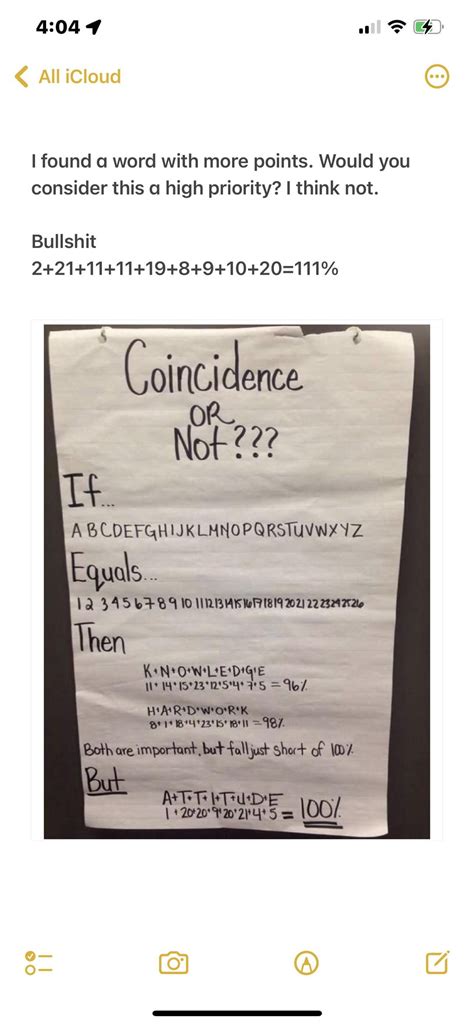 4:04
All iCloud
I found a word with more points. Would you
consider this a high priority? I think not.
Bullshit
2+21+11+11+19+8+9+10+20=111%
Coincidence
OR
Not???
If...
ABCDEFGHIJKLMNOPQRSTUVWXYZ
Equals...
1 2 3 4 5 6 7 8 9 10 11 12 13 14 15 16 17 18 19 20 21 22 23 24 25 26
Then
K+N+O+W+L+E+D+G+E
11+14+15+23+12+5+4+7+5=96%
H+A+R+D+W+O+R+K
8+1+18+4+23+15+18+11=98%
Both are important, but fall just short of 100%
But
A+T+T+I+T+U+D+E
1+20+20+9+20+21+4+5=100%